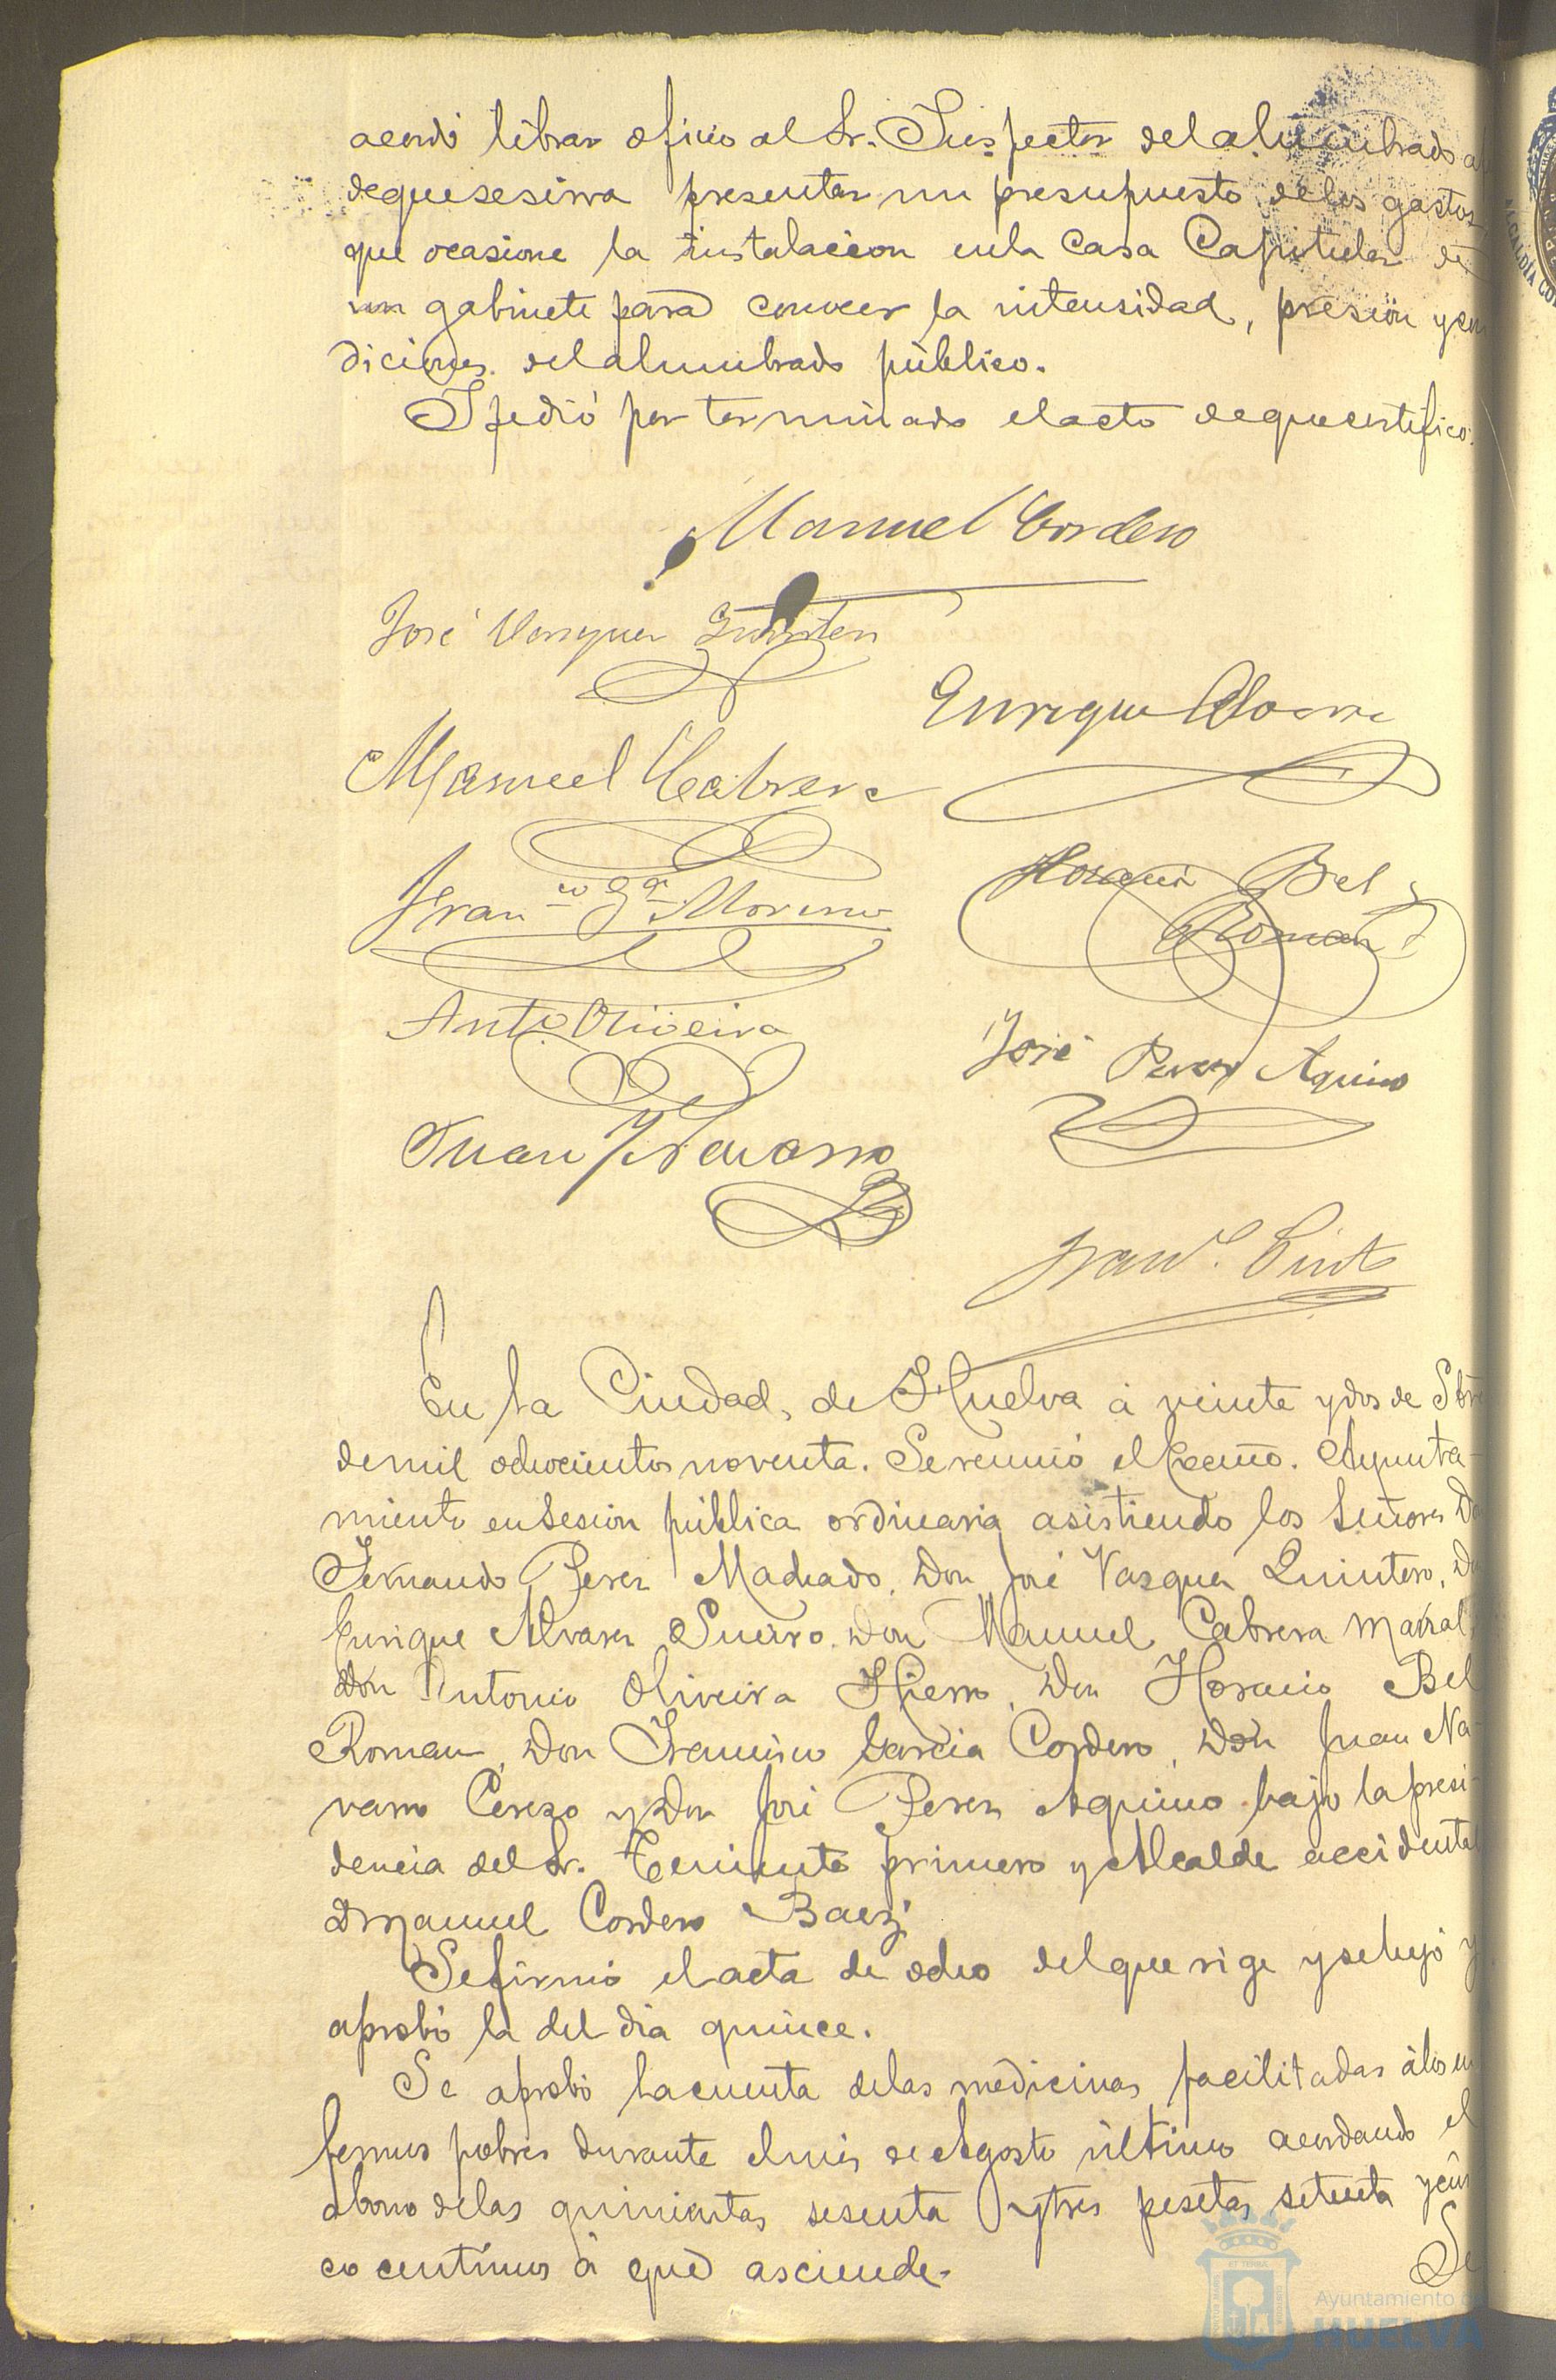 acordó librar oficio al Sr. Inspector del alumbrado a
de que se sirva presentar un presupuesto de los gastos
que ocasione la instalacion en la Casa Capitular de
un gabinete para conocer la intensidad, presion y con
diciones del alumbrado público.
Y se dió por terminado el acto de que certifico.
Manuel Cordero
José Vazquez Quintero
Enrique Alvarez
Manuel Cabrera
Horacio Bel
Roman
Fran.co Ga. Moreno
Anto. Oliveira
José Perez Aquino
Juan Navarro
Franco.
En la Ciudad, de Huelva á veinte y dos de Sbre
de mil ochocientos noventa. Se reunió el Excmo. Ayunta-
miento en Sesion pública ordinaria asistiendo los Señores Dn
Fernando Perez Machado, Don José Vazquez Quintero, Dn
Enrique Alvarez Sueiro, Don Manuel Cabrera
Don Antonio Oliveira Hierro, Don Horacio Bel
Roman, Don Francisco Garcia Cordero, Don Juan Na-
varro Cerezo y Don José Perez Aquino bajo la presi-
dencia del Sr. Teniente primero y Alcalde accidental
D Manuel Cordero Baez
Se firmó el acta de ocho del que rige y se leyó y
aprobó la del dia quince.
Se aprobó la cuenta de las medicinas facilitadas á los en
fermos pobres durante el mes de Agosto último acordando el
abono de las quinientas sesenta y tres pesetas setenta y cin
co centímos á que asciende.
Se
Ayuntamiento de
HUELVA